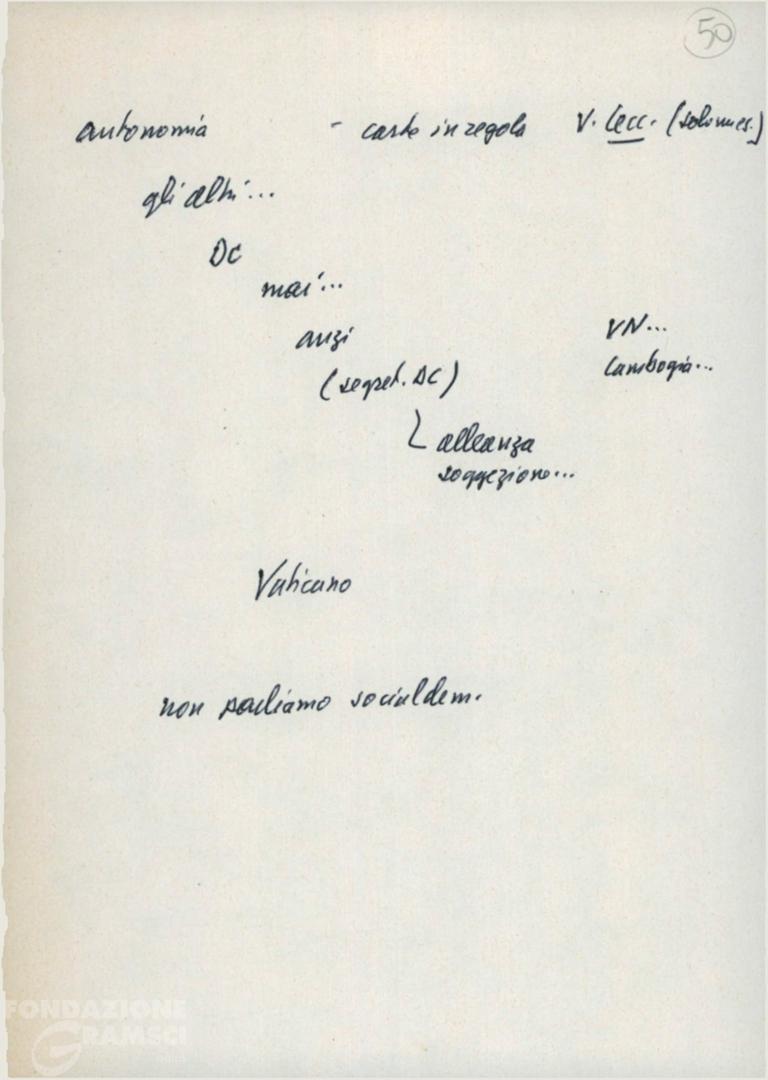 50
autonomia - carte in regola V. Cecc. (
gli altri...
DC
mai...
anzi
VN...
Cambogia...
(segret. DC)
alleanza
soggezione...
Vaticano
non parliamo socialdem.
FONDAZIONE
GRAMSCI